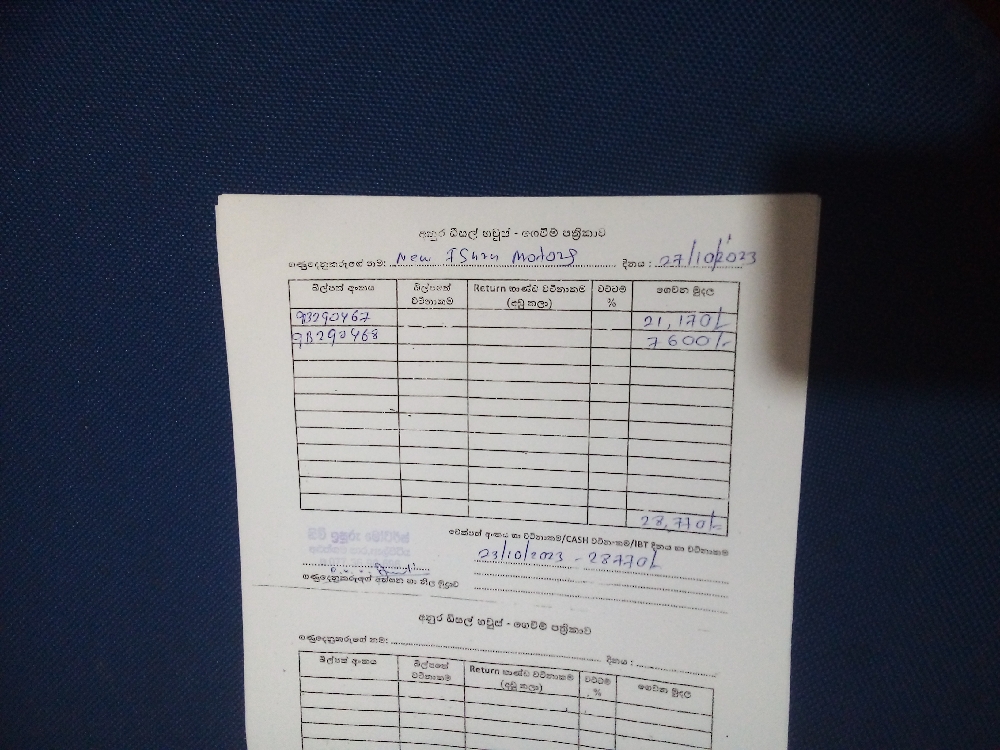 අනුර ඩීසල් හවුස් - ගෙවීම් පත්‍රිකාව
ගණුදෙනුකරුගේ නම: New ISuru Motors දිනය : 27/10/2023
බිල්පත් අංකය බිල්පතේ වටිනාකම Return භාණ්ඩ වටිනාකම (අඩු කලා) වට්ටම් % ගෙවන මුදල
93290467 21,170/-
9B290468 7600/-
28,770/-
චෙක්පත් අංකය හා වටිනාකම/CASH වටිනාකම/IBT දිනය හා වටිනාකම
23/10/2023 - 28770/-
නිව් ඉසුරු මෝටර්ස්
ගණුදෙනුකරුගේ අත්සන හා නිල මුද්‍රාව
අනුර ඩීසල් හවුස් - ගෙවීම් පත්‍රිකාව
ගණුදෙනුකරුගේ නම: දිනය :
බිල්පත් අංකය බිල්පතේ වටිනාකම Return භාණ්ඩ වටිනාකම (අඩු කලා) වට්ටම් % ගෙවන මුදල